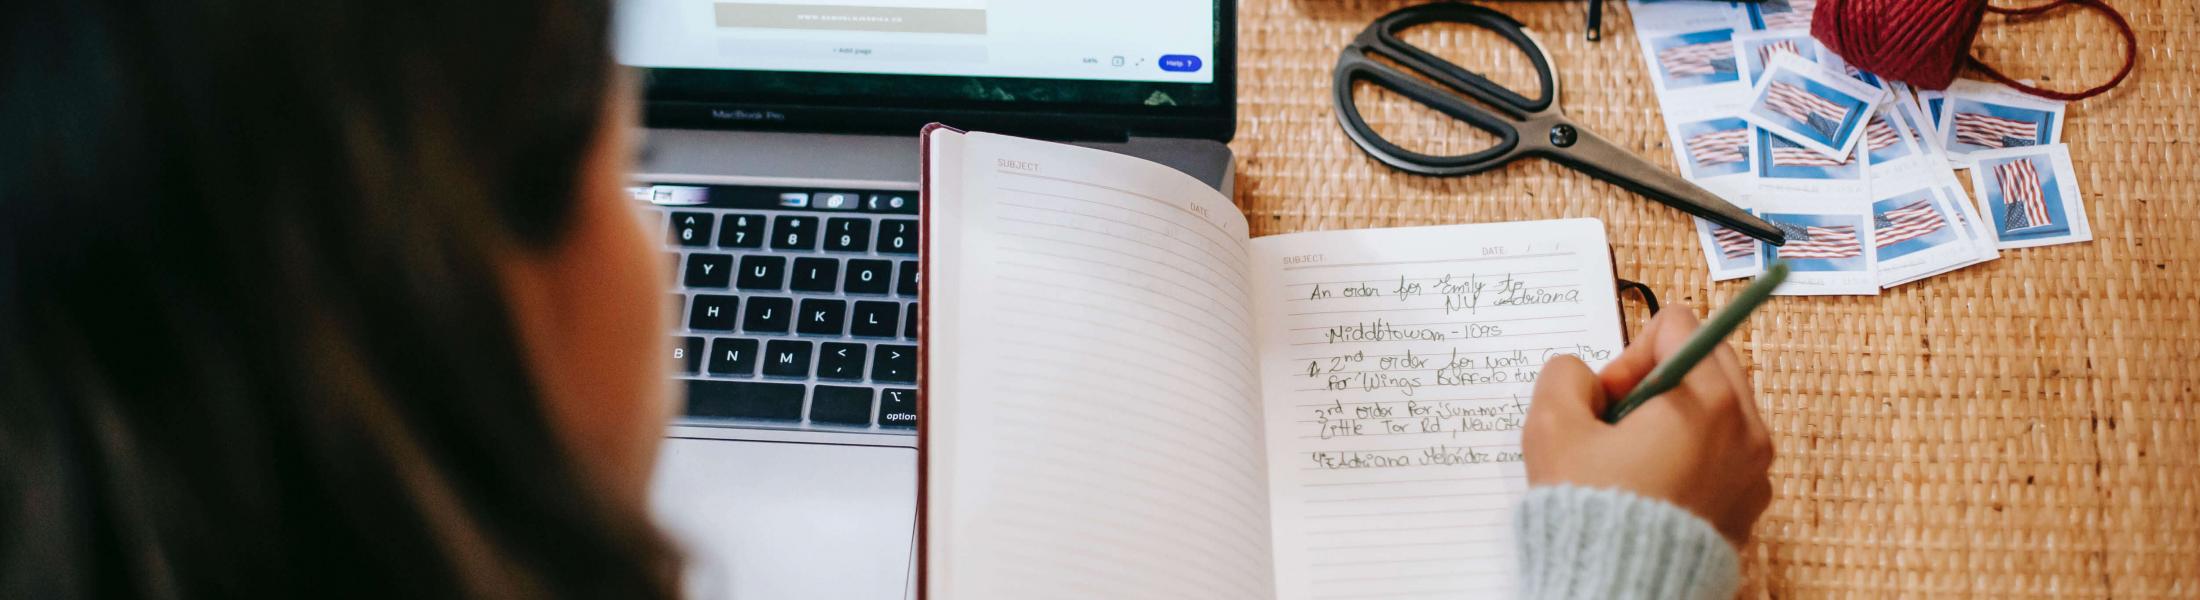 + Add page
Help ?
MacBook Pro
^ & * ( )
6 7 8 9 0
Y U I O
H J K L
B N M < >
, .
option
SUBJECT:
DATE: / /
SUBJECT:
DATE: / /
An order for Emily to
NY Adriana
Middletowom - 1095
2nd order for north Carolina
for Wings Buffalo
3rd order for Summer
Little Tor Rd, New City
4 Adriana